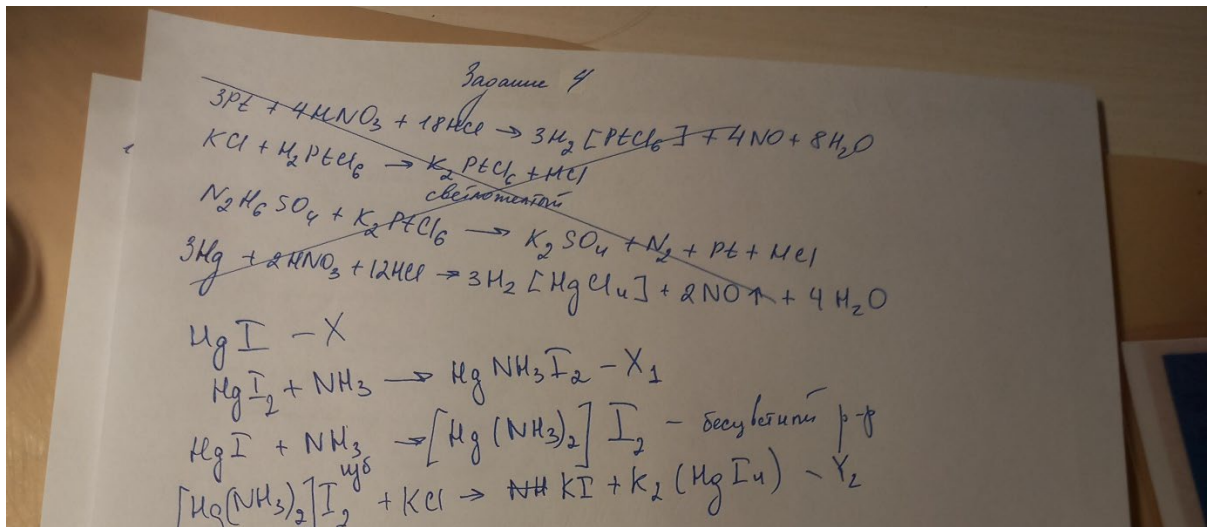 Задание 4
3Pt + 4HNO₃ + 18HCl → 3H₂[PtCl₆] + 4NO + 8H₂O
KCl + H₂PtCl₆ → K₂PtCl₆ + HCl
светложелтый
N₂H₆SO₄ + K₂PtCl₆ → K₂SO₄ + N₂ + Pt + HCl
3Hg + 2HNO₃ + 12HCl → 3H₂[HgCl₄] + 2NO↑ + 4H₂O
HgI – X
HgI₂ + NH₃ → HgNH₃I₂ – X₁
HgI + NH₃ изб → [Hg(NH₃)₂]I₂ – бесцветный р-р
[Hg(NH₃)₂]I₂ + KCl → KI + K₂(HgI₄) – Y₂